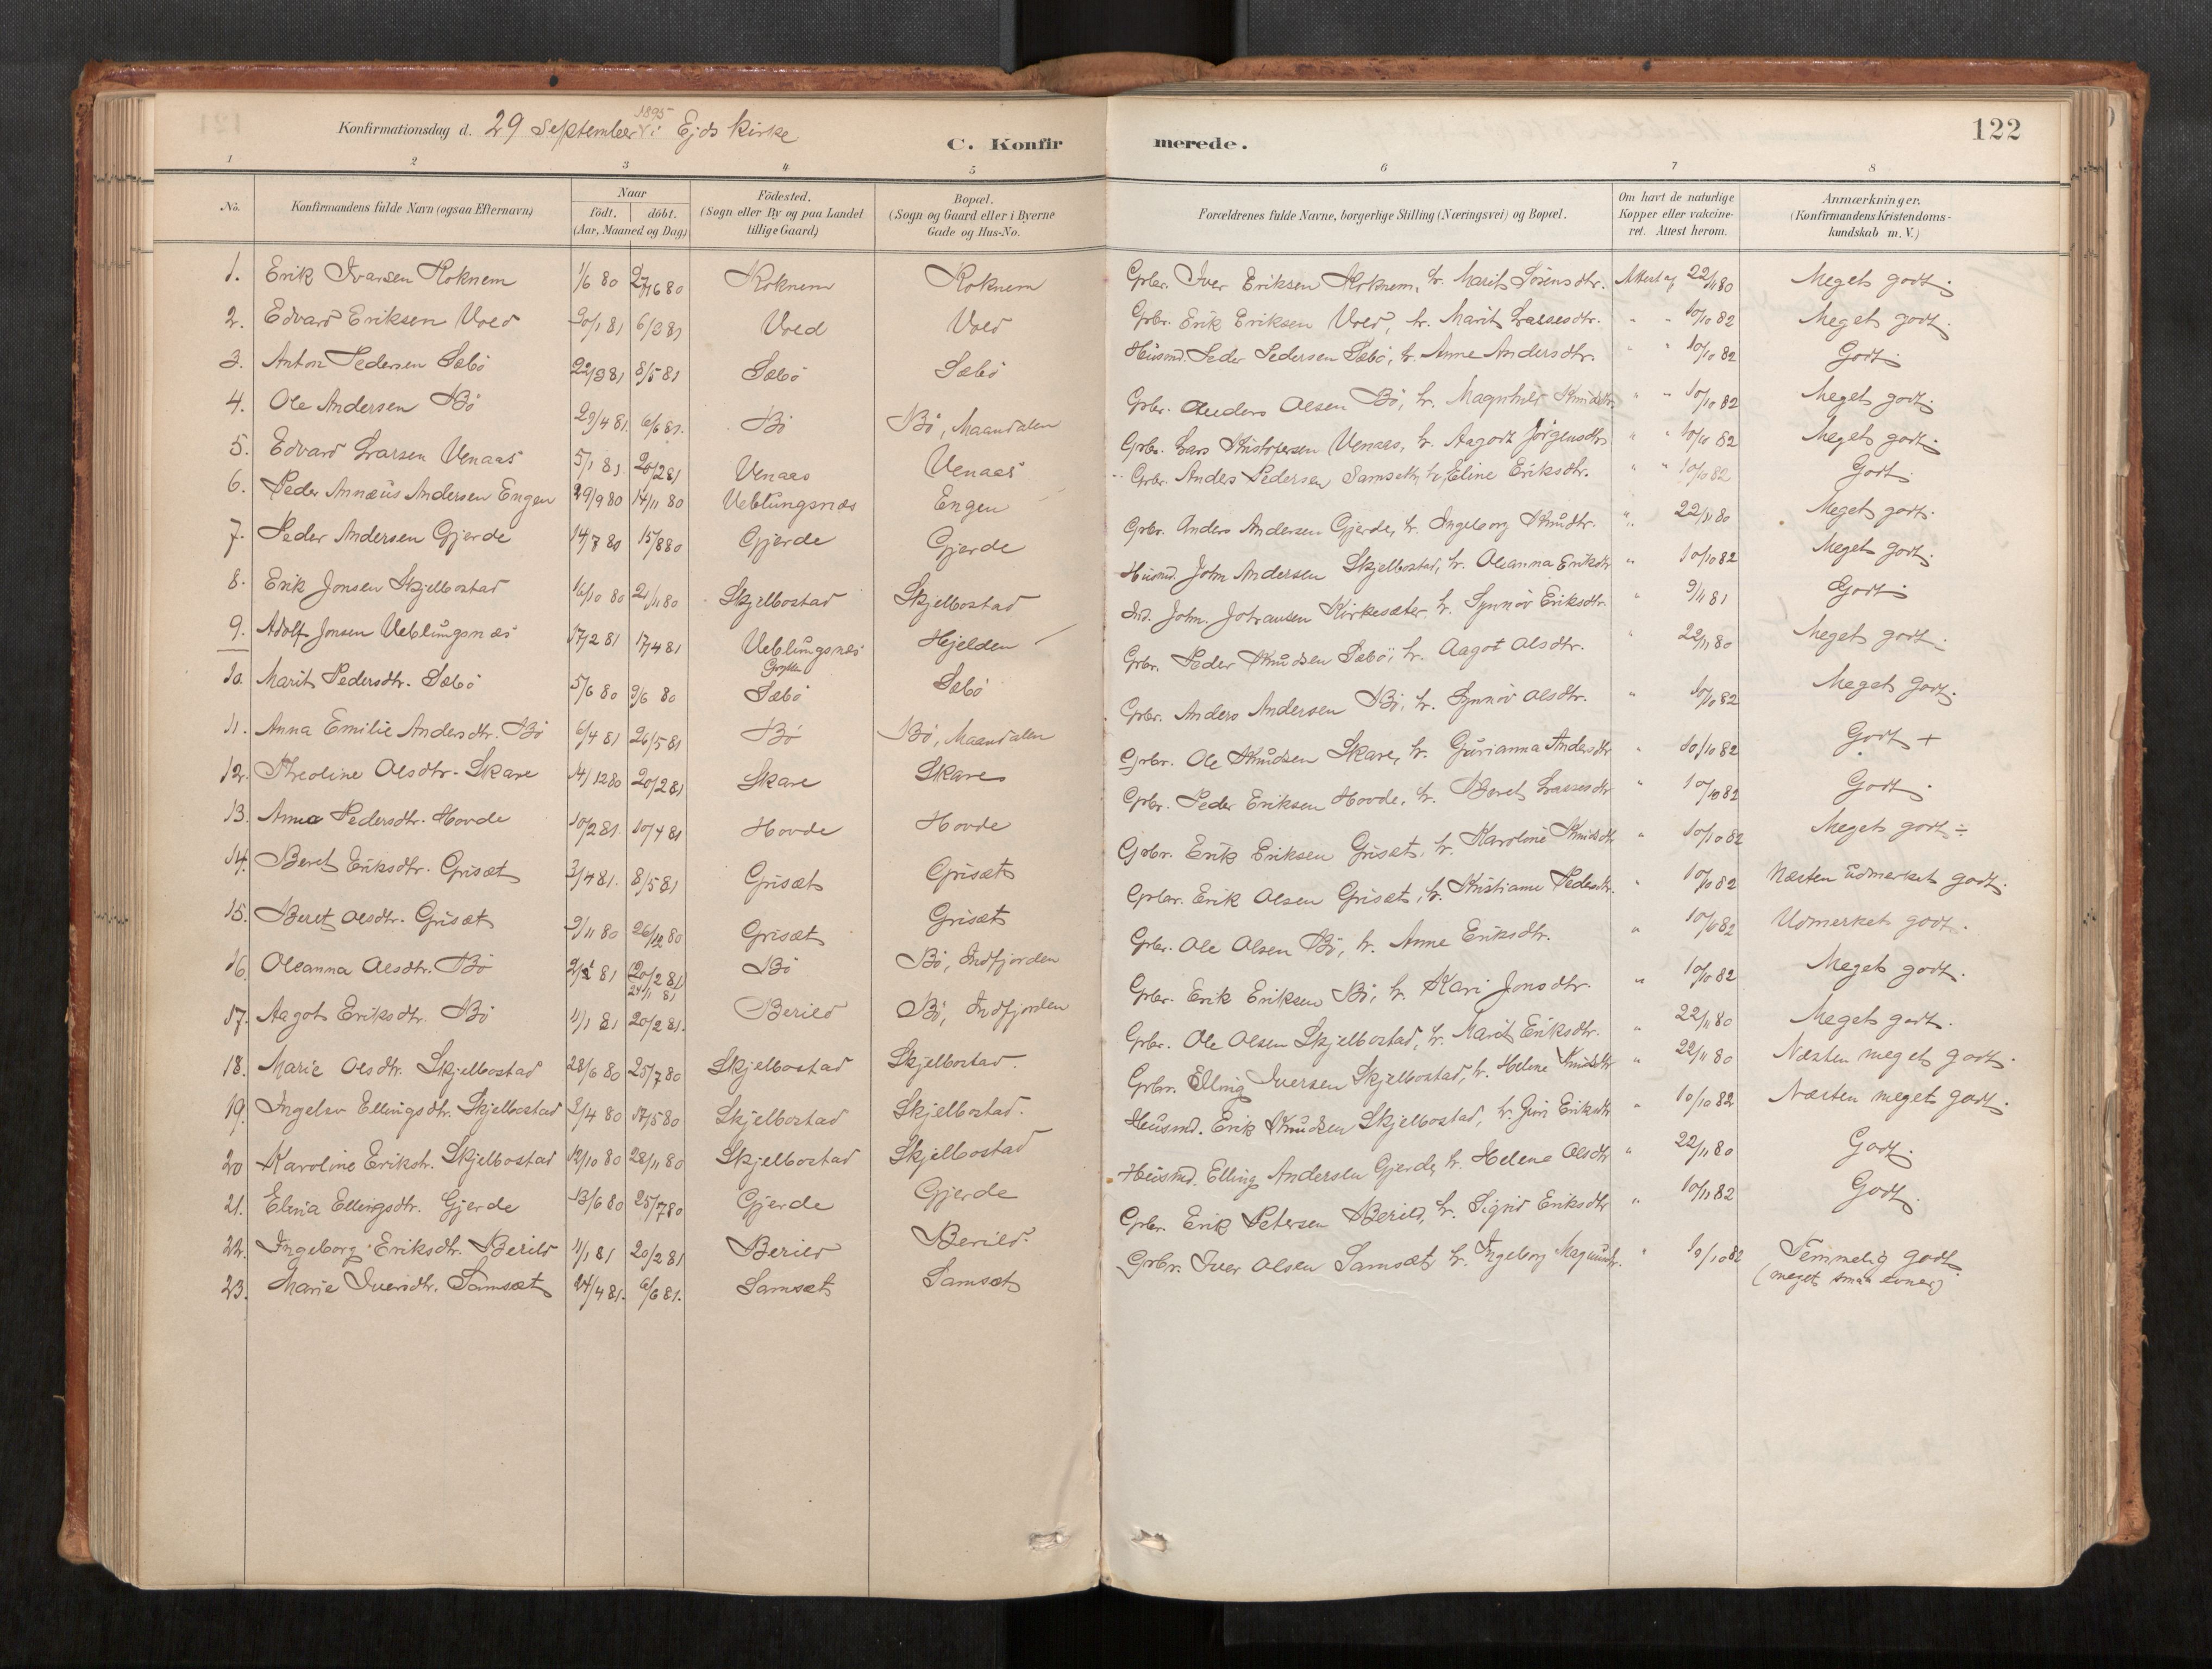 Konfirmationsdag d. 29 September 1895 i Ejds Kirke
C. Konfirmerede.
122
1 2 3 4 5 6 7 8
No. Konfirmandens fulde Navn (ogsaa Efternavn) Naar födt. döbt. (Aar, Maaned og Dag) Födested. (Sogn eller By og paa Landet tillige Gaard) Bopæl. (Sogn og Gaard eller i Byerne Gade og Hus-No. Forældrenes fulde Navne, borgerlige Stilling (Næringsvei) og Bopæl. Om havt de naturlige Kopper eller vakcineret. Attest herom. Anmærkninger. (Konfirmandens Kristendomskundskab m. V.)
1. Erik Ivarsen Koknem 1/6 80 27/6 80 Koknem Koknem Grbr. Iver Eriksen Koknem, h. Marit Sörensdtr. Attest af 22/11 80 Meget godt.
2. Edvard Eriksen Vold 20/1 81 6/3 81 Vold Vold Grbr. Erik Eriksen Vold, h. Marit Lassesdtr. " " 10/10 82 Meget godt.
3. Anton Pedersen Sæbö 22/3 81 8/5 81 Sæbö Sæbö Husmd. Peder Pedersen Sæbö, h. Anne Andersdtr. " " 10/10 82 Godt.
4. Ole Andersen Bö 23/4 81. 6/6 81. Bö Bö, Maandalen Grbr. Anders Olsen Bö, h. Magnhild Knudsdtr. " " 10/10 82 Meget godt.
5. Edvard Larsen Venaas 5/1 81 20/2 81 Venaas Venaas Grbr. Lars Kristofersen Venaas, h. Aagodt Jörgensdtr. " " 10/10 82 Meget godt.
6. Peder Annæus Andersen Engen 29/9 80 14/11 80 Veblungsnæs Engen Grbr. Andes Pedersen Samseth, h. Eline Eriksdtr. " " 10/10 82 Godt.
7. Peder Andersen Gjerde 14/7 80 15/8 80 Gjerde Gjerde Grbr. Anders Andersen Gjerde, h. Ingeborg Knudtr. " 22/11 80 Meget godt.
8. Erik Jonsen Skjelbostad 16/10 80 21/11 80 Skjelbostad Skjelbostad Husmd. John Andersen Skjelbostad, h. Oleanna Eriksdtr " 10/10 82 Meget godt.
9. Adolf Jonsen Veblungsnæs 17/2 81 17/4 81 Veblungsnæs Hjelden Ind. John. Johansen Kirkesæter h. Synnöv Eriksdtr. " 9/11 81 Godt.
10. Marit Pedersdtr. Sæbö 5/6 80 9/6 80 Sæbö Sæbö Grbr. Peder Knudsen Sæbö, h. Aagot Olsdtr. " 22/11 80 Meget godt.
11. Anna Emilie Andersdtr. Bö 6/4 81 26/5 81 Bö Bö, Maandalen Grbr. Anders Andersen Bö, h. Synnöv Olsdtr. " 10/10 82 Meget godt.
12. Theoline Olsdtr. Skare 14/12 80 20/2 81 Skare Skare Grbr. Ole Knudsen Skare, h. Gurianna Andersdtr " 10/10 82 Godt +
13. Anna Pedersdtr. Hovde 10/2 81. 10/4 81 Hovde Hovde Grbr. Peder Eriksen Hovde, h. Beret Lassesdtr " 10/10 82 Godt.
14. Beret Eriksdtr. Grisæt 3/4 81. 8/5 81 Grisæt Grisæt Grbr. Erik Eriksen Grisæt, h. Karoline Knudsdtr " 10/10 82 Meget godt ÷
15. Beret Olsdtr. Grisæt 9/11 80 26/12 80 Grisæt Grisæt Grbr. Erik Olsen Grisæt, h. Kristiane Pedersdtr. " 10/10 82 Næsten udmerket godt.
16. Oleanna Olsdtr. Bö 2/1 81 (20/2 81) 24/1 81 Bö Bö, Indfjorden Grbr. Ole Olsen Bö, h. Anne Eriksdtr. " 10/10 82 Udmerket godt.
17. Aagot Eriksdtr. Bö 4/1 81 20/2 81. Berild Bö, Indfjorden Grbr. Erik Eriksen Bö, h. Kari Jonsdtr. " 10/10 82 Meget godt.
18. Marie Olsdtr. Skjelbostad 28/6 80 25/7 80 Skjelbostad Skjelbostad. Grbr. Ole Olsen Skjelbostad, h. Marit Eriksdtr. " 22/11 80 Meget godt.
19. Ingelev Ellingsdtr. Skjelbostad 3/4 80 17/5 80 Skjelbostad Skjelbostad. Grbr. Elling Iversen Skjelbostad, h. Helene Knudsdtr " 22/11 80 Næsten meget godt.
20 Karoline Erikstr. Skjelbostad 12/10 80 28/11 80 Skjelbostad Skjelbostad Husmd. Erik Knudsen Skjelbostad, h. Guri Eriksdtr " 10/10 82 Næsten meget godt.
21. Elina Ellingsdtr. Gjerde 13/6 80 25/7 80 Gjerde Gjerde Husmd. Elling Andersen Gjerde, h. Helene Olsdtr " 22/11 80 Godt.
22. Ingeborg Eriksdtr. Berild 4/1 81 20/2 81 Berild Berild. Grbr. Erik Petersen Berild, h. Sigrid Eriksdtr " 10/11 82 Godt.
23. Marie Iversdtr. Samsæt 24/4 81. 6/6 81. Samsæt Samsæt Grbr. Iver Olsen Samsæt h. Ingeborg Magnusdtr. " 10/10 82 Temmelig godt.
(meget smaa evner)